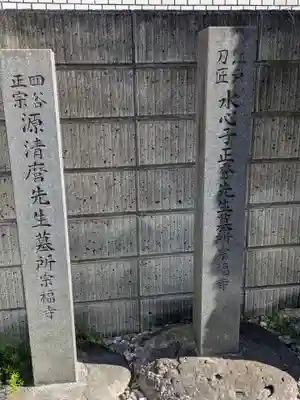 江戸刀匠 水心子正秀先生墓所 宗福寺
四谷正宗 源清麿先生墓所 宗福寺